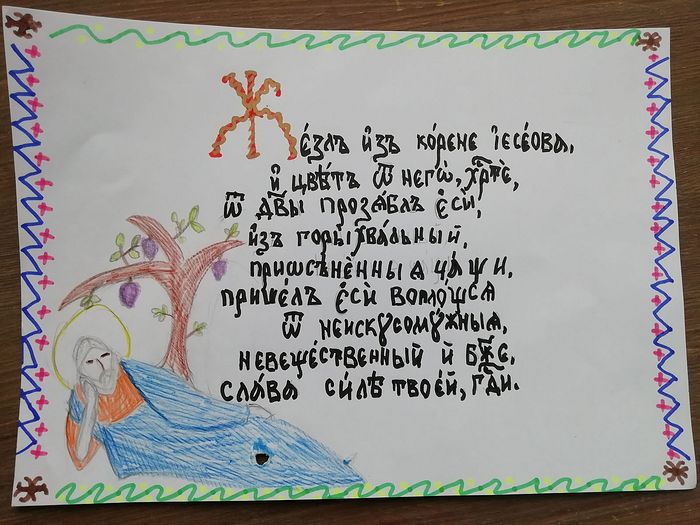 Же́злъ и҆зъ ко́рене і҆есе́ова,
и҆ цвѣ́тъ ѿ негѡ̀, хрⷭ҇тѐ,
ѿ дв҃ы прозѧ́блъ є҆сѝ,
и҆зъ горы̀ хва́льный,
приѡсѣне́нныѧ ча́щи,
прише́лъ є҆сѝ
ѿ неискꙋсомꙋ́жныѧ,
невеще́ственный и҆ бж҃е,
сла́ва си́лѣ твое́й, гдⷭ҇и.